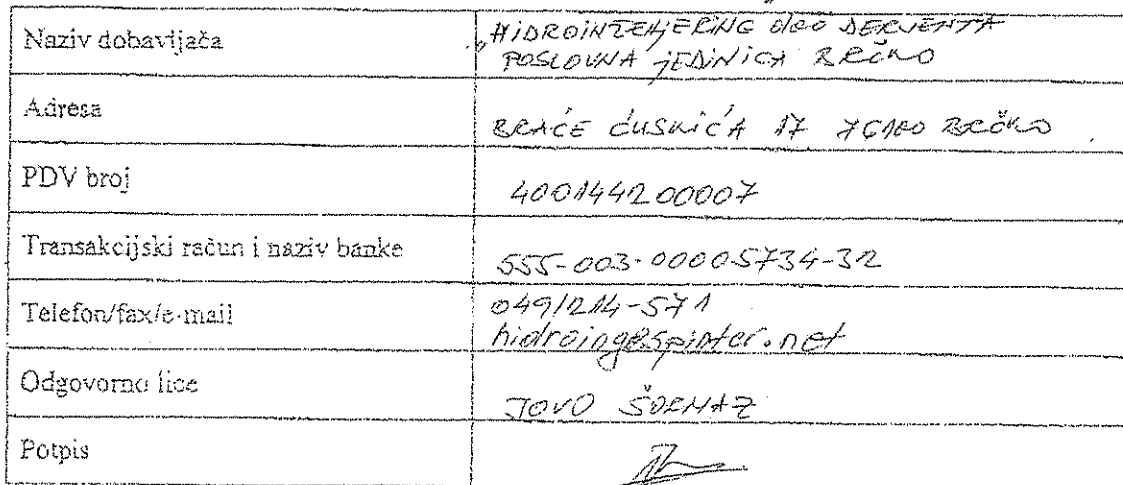 Naziv dobavljača
„HIDROINŽENJERING doo DERVENTA
POSLOVNA JEDINICA BRČKO
Adresa
BRAĆE ĆUSKIĆA 17 76100 BRČKO
PDV broj
400144200007
Transakcijski račun i naziv banke
555-003-00005734-32
Telefon/fax/e-mail
049/214-571
hidroing@spinter.net
Odgovorno lice
JOVO
Potpis